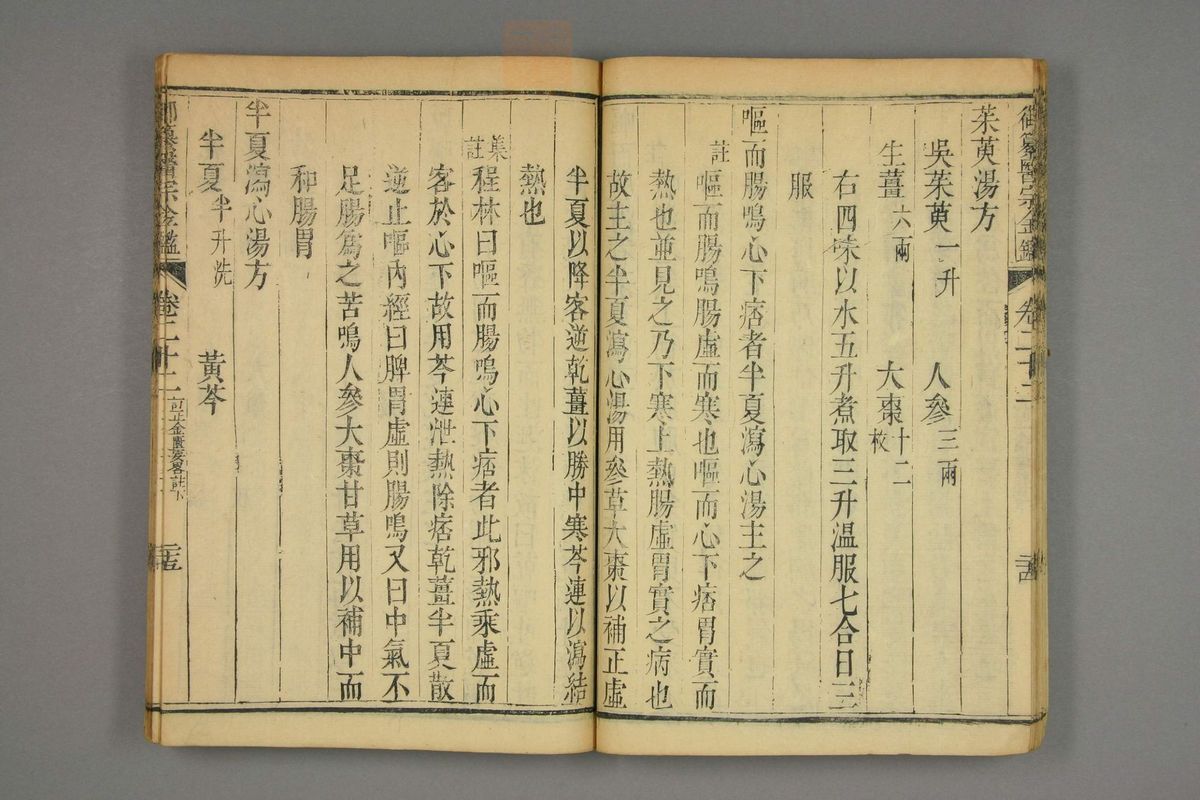 御纂醫宗金鑑 卷二十二 二古
茱萸湯方
吳茱萸一升 人參三兩
生薑六兩 大棗十二枚
右四味以水五升煮取三升溫服七合日三
服
嘔而腸鳴心下痞者半夏瀉心湯主之
註 嘔而腸鳴腸虛而寒也嘔而心下痞胃實而
熱也並見之乃下寒上熱腸虛胃實之病也
故主之半夏瀉心湯用參草大棗以補正虛
半夏以降客逆乾薑以勝中寒芩連以瀉結
熱也
集註 程林曰嘔而腸鳴心下痞者此邪熱乘虛而
客於心下故用芩連泄熱除痞乾薑半夏散
逆止嘔內經曰脾胃虛則腸鳴又曰中氣不
足腸為之苦鳴人參大棗甘草用以補中而
和腸胃
半夏瀉心湯方
半夏半升洗 黃芩
御纂醫宗金鑑 卷二十二 訂正金匱要畧註下 二十五